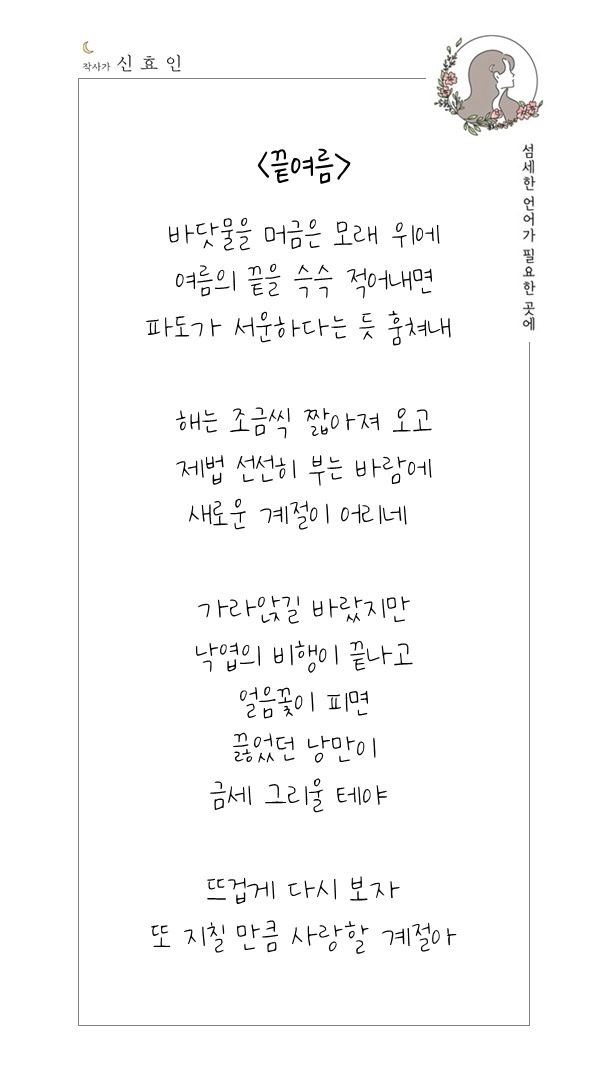 작사가 신효인
섬세한 언어가 필요한 곳에
<끝여름>
바닷물을 머금은 모래 위에
여름의 끝을 슥슥 적어내면
파도가 서운하다는 듯 훔쳐내
해는 조금씩 짧아져 오고
제법 선선히 부는 바람에
새로운 계절이 어리네
가라앉길 바랐지만
낙엽의 비행이 끝나고
얼음꽃이 피면
끓었던 낭만이
금세 그리울 테야
뜨겁게 다시 보자
또 지칠 만큼 사랑할 계절아